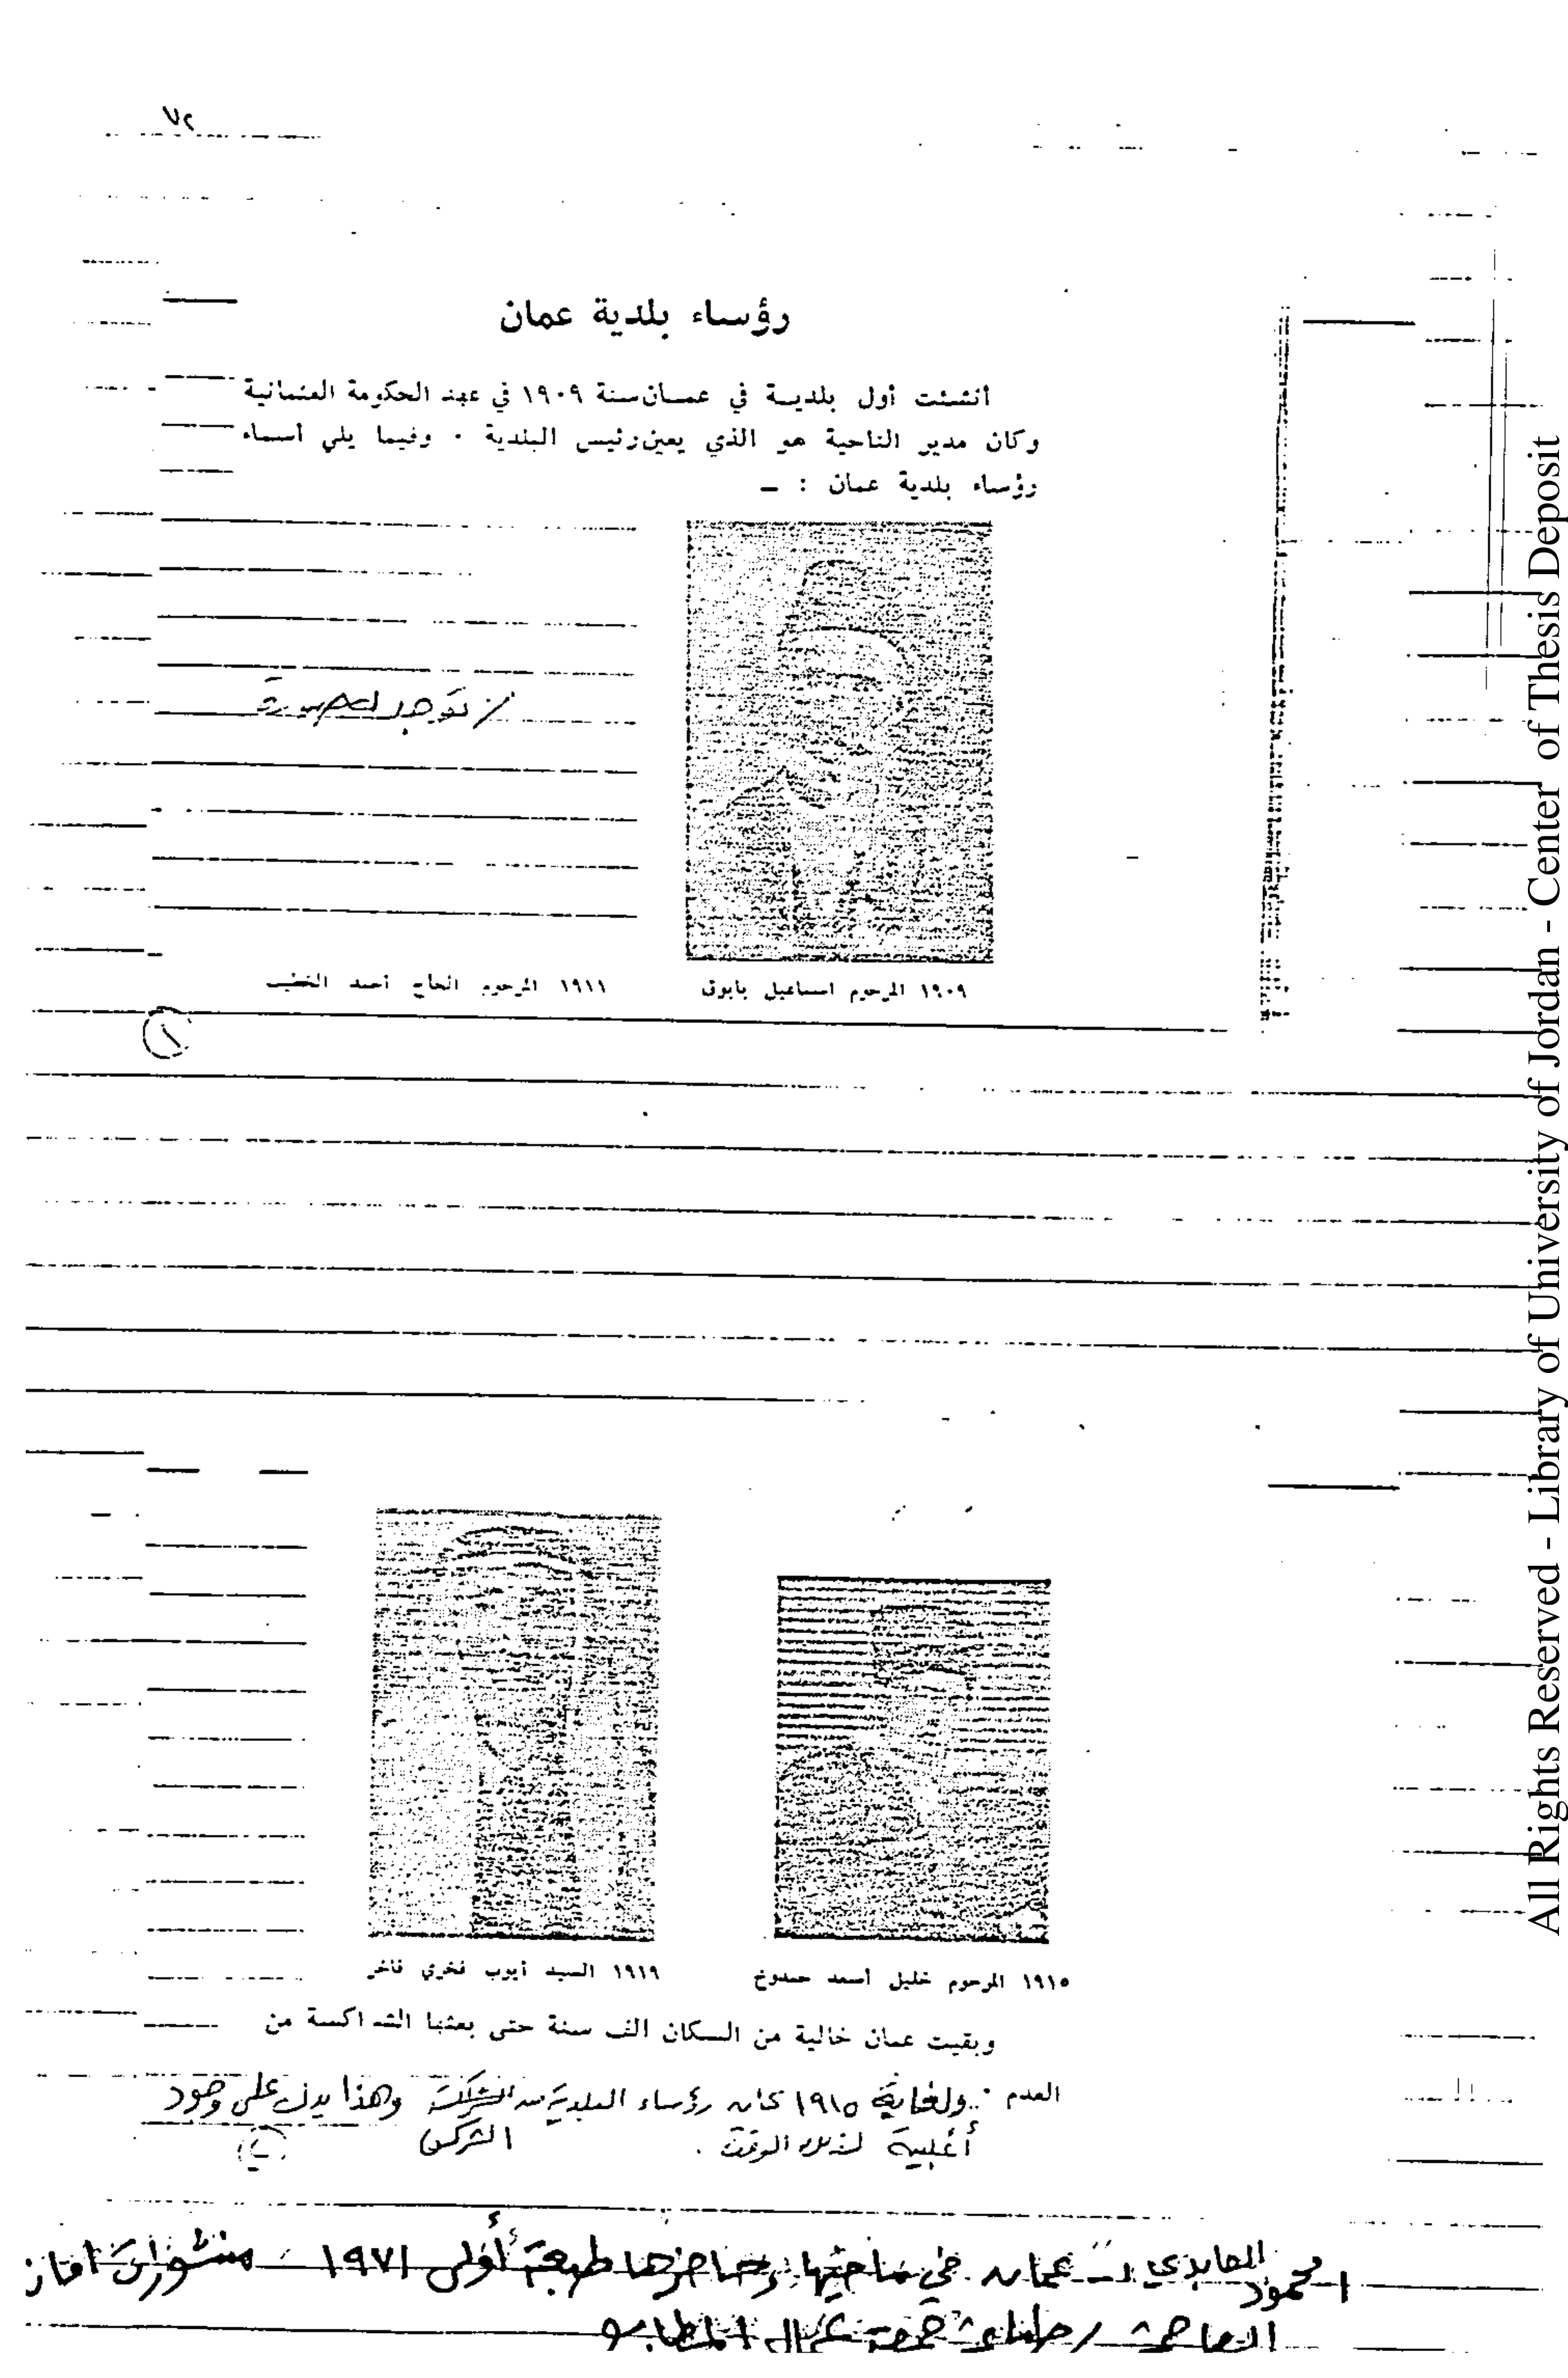 ٧٢
رؤساء بلدية عمان
أنشئت أول بلدية في عمان سنة ١٩٠٩ في عهد الحكومة العثمانية
وكان مدير الناحية هو الذي يعين رئيس البلدية . وفيما يلي أسماء
رؤساء بلدية عمان : ـ
لا توجد له صورة
١٩٠٩ المرحوم اسماعيل بابوق
١٩١١ المرحوم الحاج أحمد الخطيب
١
١٩١٥ المرحوم خليل أسعد حمدوخ
١٩١٩ السيد أيوب فخري فاخر
وبقيت عمان خالية من السكان الف سنة حتى بعثها الشراكسة من
العدم . ولغاية ١٩١٥ كان رؤساء البلدية من الشركس وهذا يدل على وجود
أغلبية لذلك الوقت . الشركس
١ـ محمود العابدي ـ عمان في ماضيها وحاضرها طبعة أولى ١٩٧١ ـ منشورات أمانة
العاصمة / جمعية عمال المطابع
All Rights Reserved - Library of University of Jordan - Center of Thesis Deposit